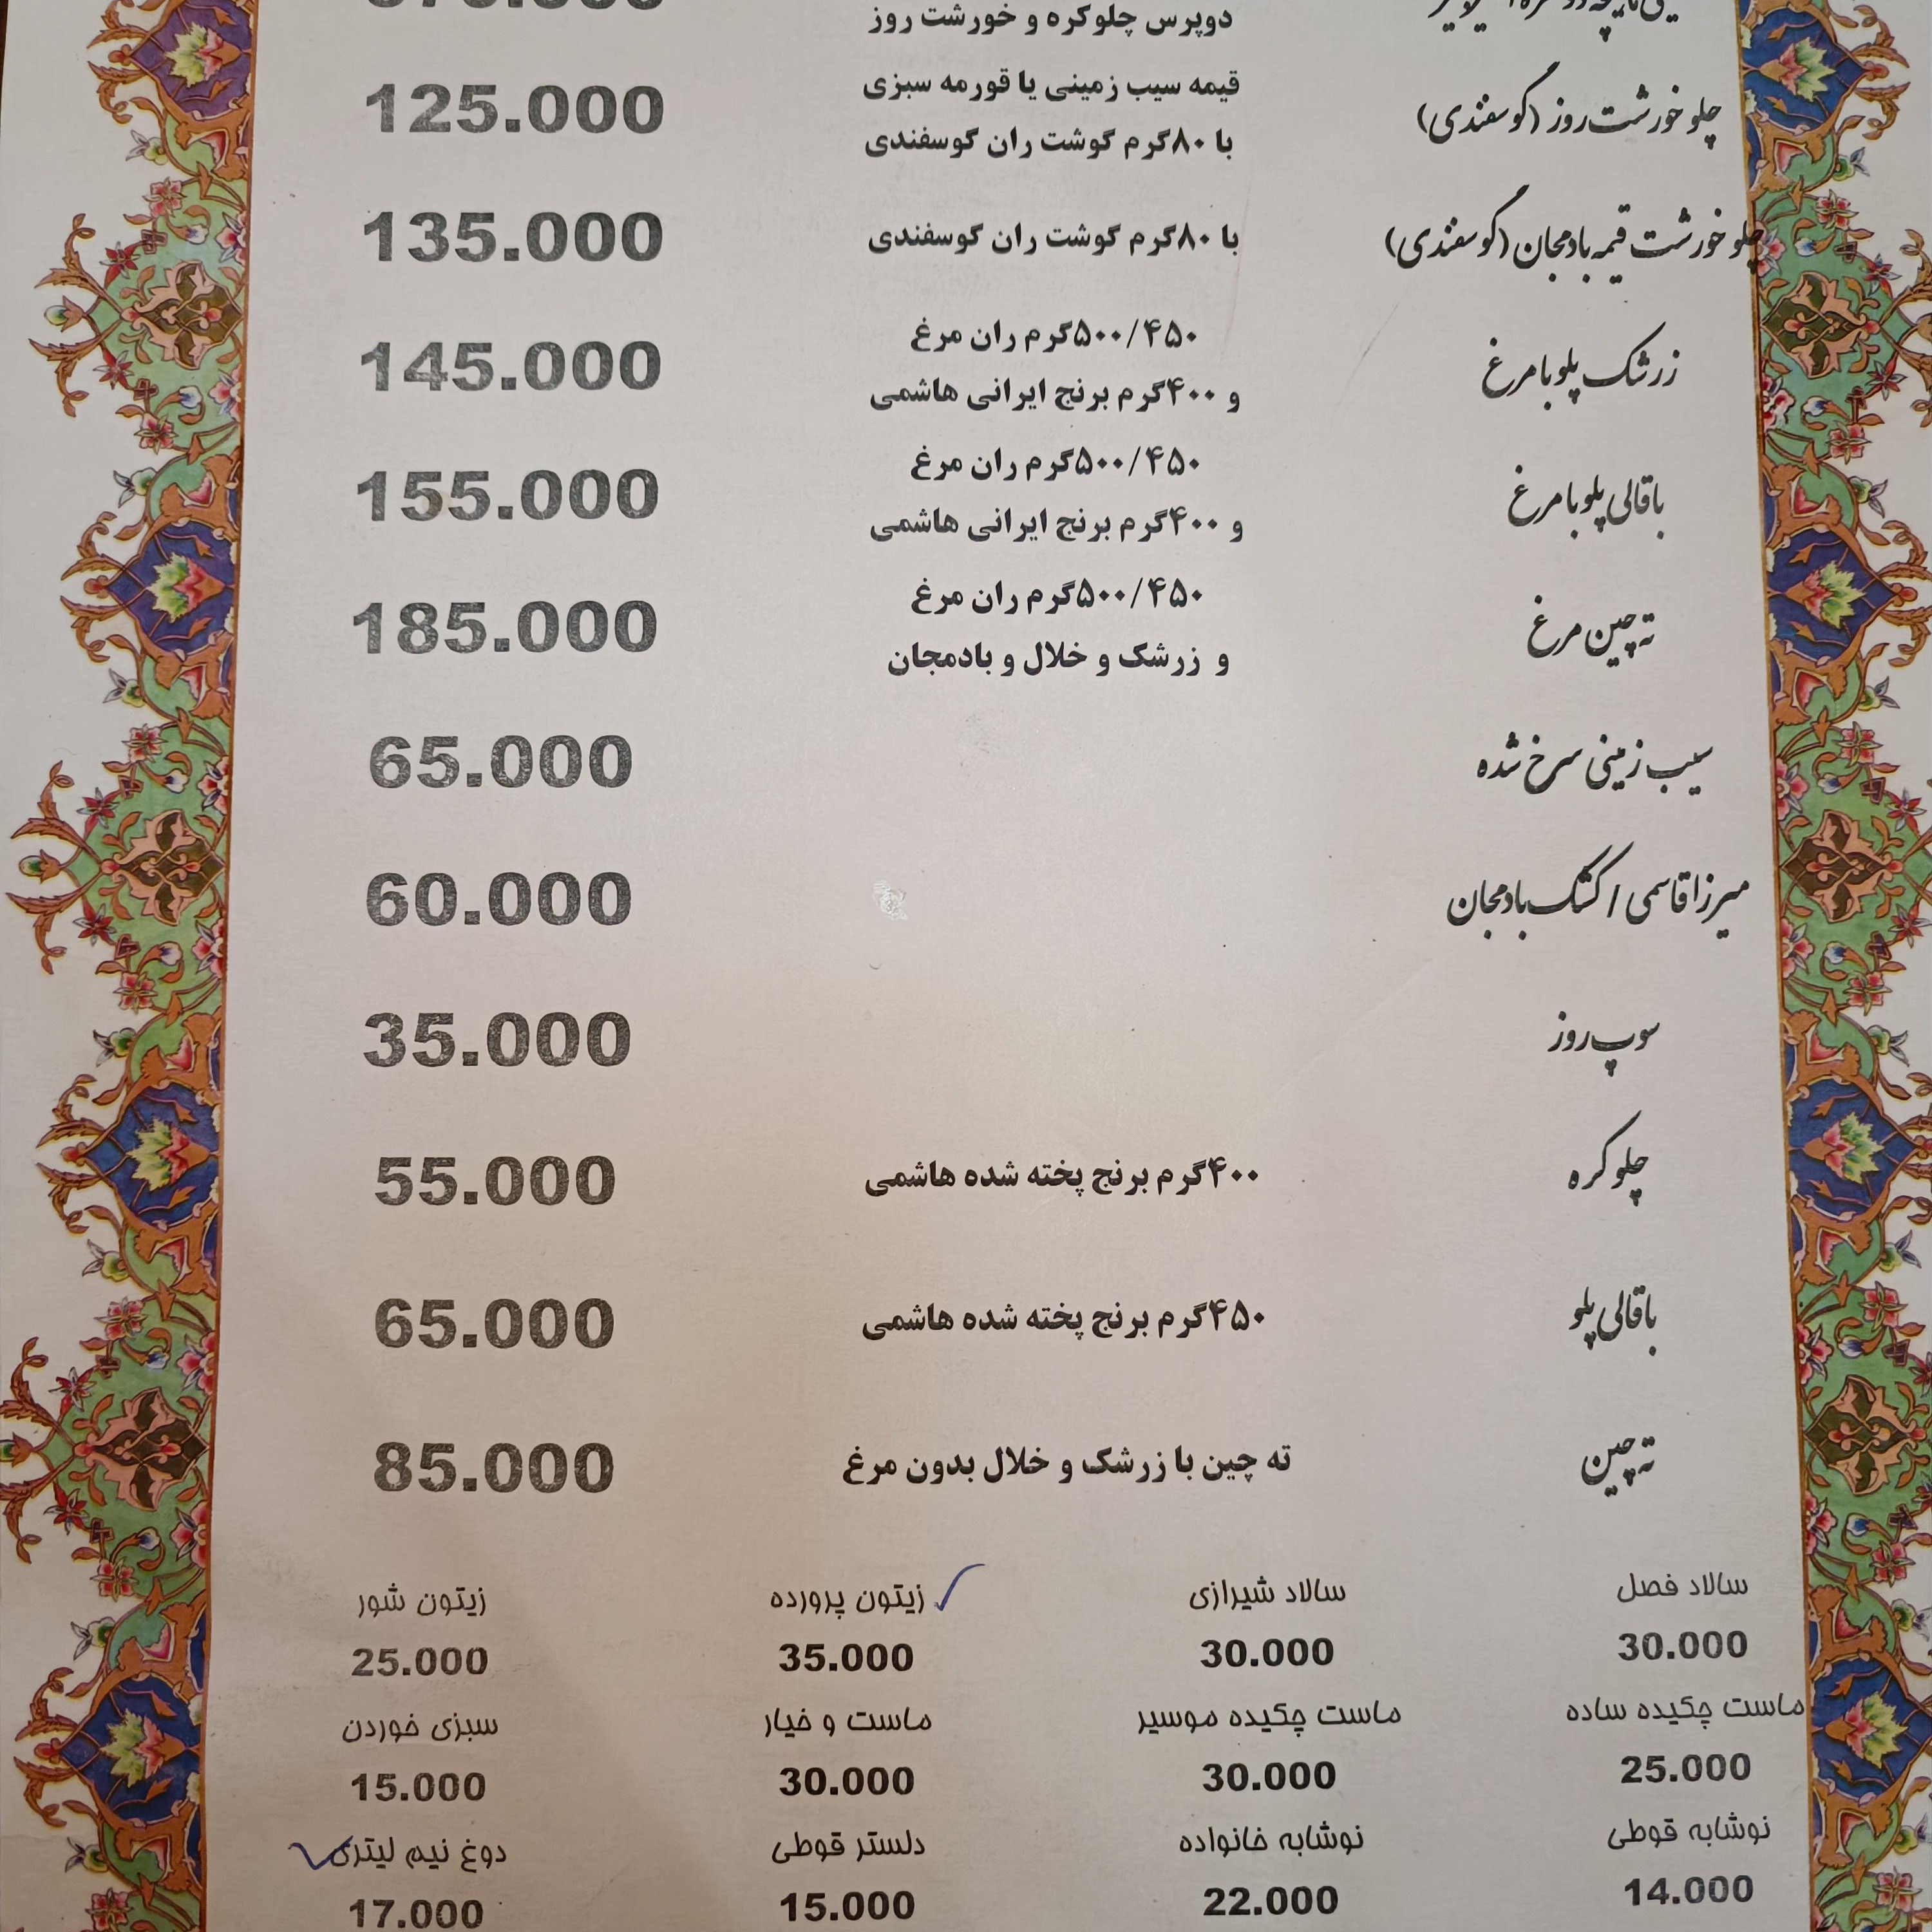 دوپرس چلوکره و خورشت روز
چلو خورشت روز (گوسفندی)
قیمه سیب زمینی یا قورمه سبزی
با ۸۰گرم گوشت ران گوسفندی
125.000
چلو خورشت قیمه بادمجان (گوسفندی)
با ۸۰گرم گوشت ران گوسفندی
135.000
زرشک پلو با مرغ
۵۰۰/۴۵۰گرم ران مرغ
و ۴۰۰گرم برنج ایرانی هاشمی
145.000
باقالی پلو با مرغ
۵۰۰/۴۵۰گرم ران مرغ
و ۴۰۰گرم برنج ایرانی هاشمی
155.000
ته چین مرغ
۵۰۰/۴۵۰گرم ران مرغ
و زرشک و خلال و بادمجان
185.000
سیب زمینی سرخ شده
65.000
میرزا قاسمی / کشک بادمجان
60.000
سوپ روز
35.000
چلو کره
۴۰۰گرم برنج پخته شده هاشمی
55.000
باقالی پلو
۴۵۰گرم برنج پخته شده هاشمی
65.000
ته چین
ته چین با زرشک و خلال بدون مرغ
85.000
سالاد فصل سالاد شیرازی زیتون پرورده زیتون شور
30.000 30.000 35.000 25.000
ماست چکیده ساده ماست چکیده موسیر ماست و خیار سبزی خوردن
25.000 30.000 30.000 15.000
نوشابه قوطی نوشابه خانواده دلستر قوطی دوغ نیم لیتری
14.000 22.000 15.000 17.000